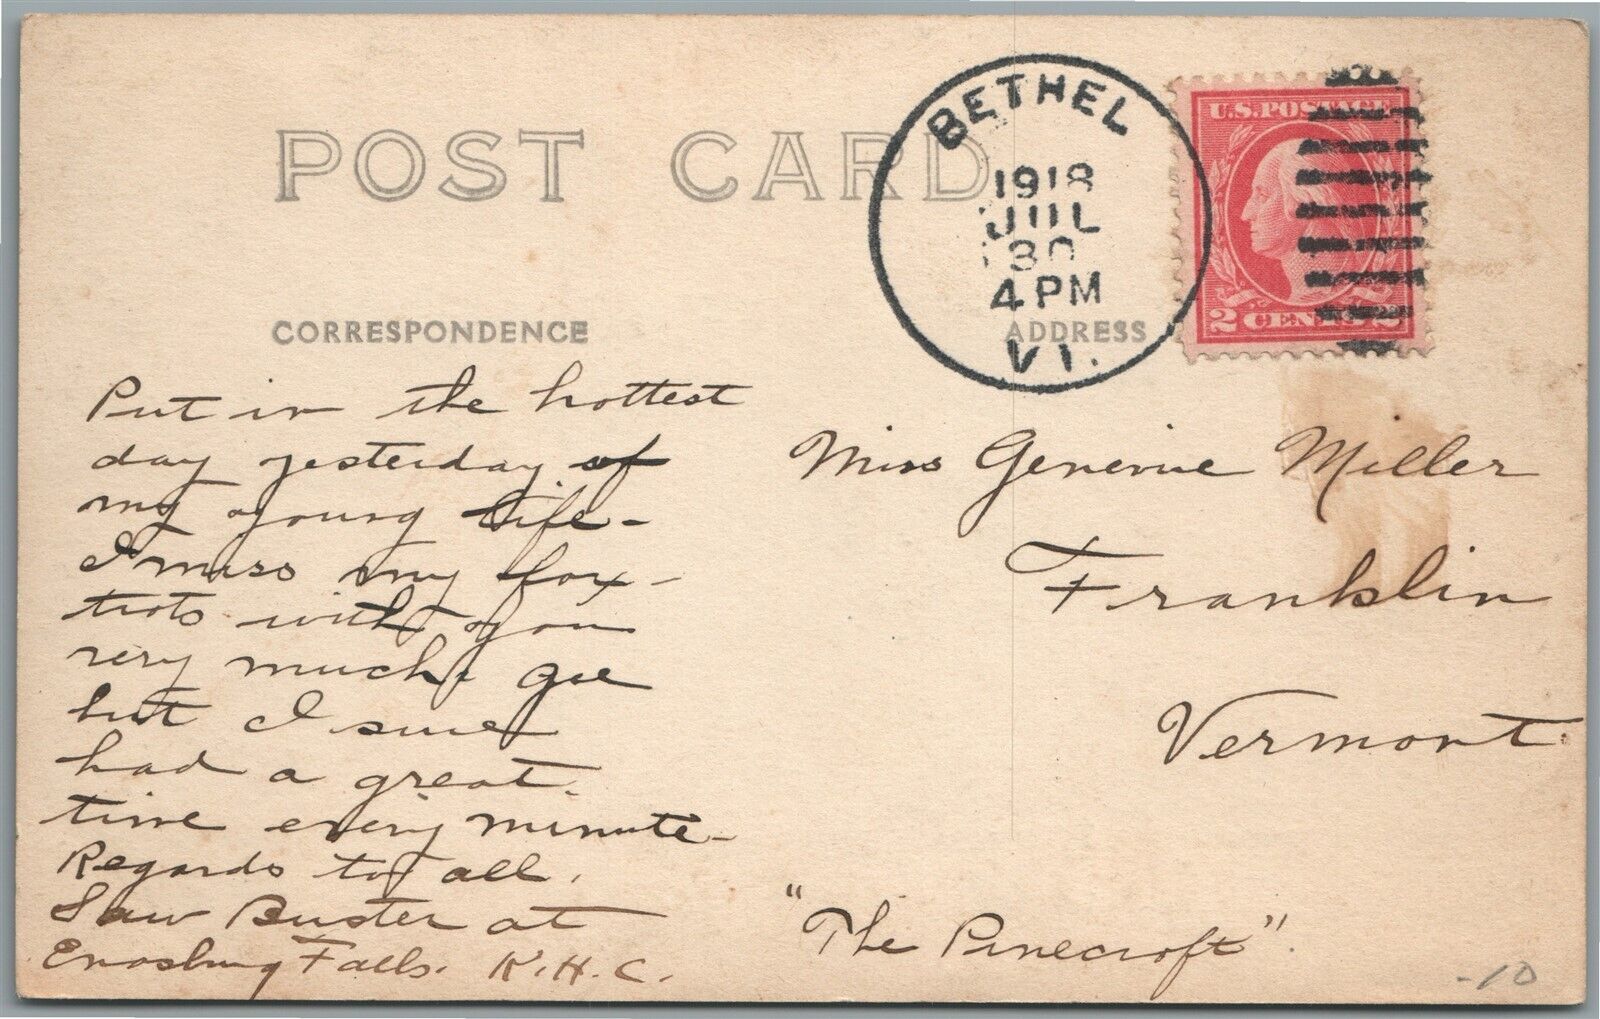 POST CARD
BETHEL
1918
JUL
30
4 PM
VT.
U.S. POSTAGE
2 CENTS 2
CORRESPONDENCE
ADDRESS
Put in the hottest
day yesterday of
my young life-
I miss my fox-
trots with you
very much. Gee
but I sure
had a great
time every minute-
Regards to all.
Saw Buster at
Enosburg Falls. K.H.C.
Miss Genevive Miller
Franklin
Vermont.
"The Pinecroft".
-10